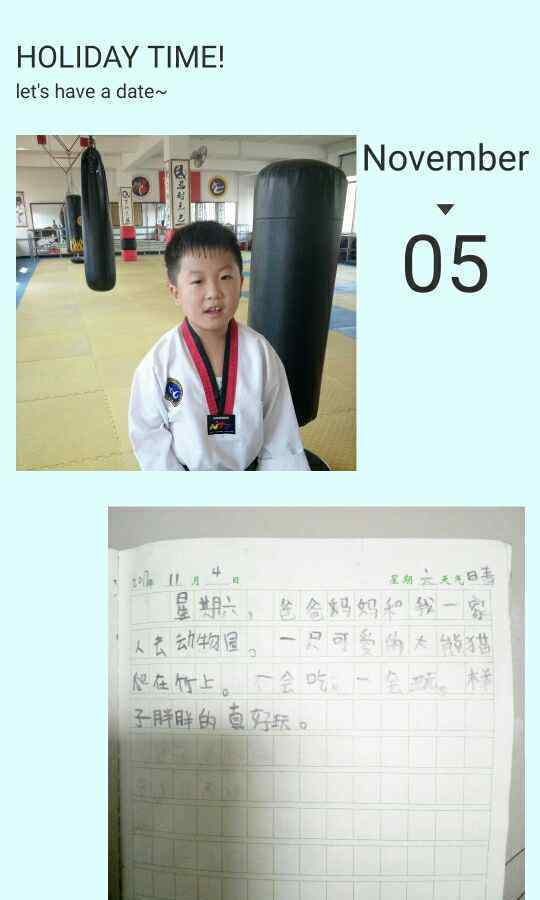 HOLIDAY TIME!
let's have a date~
November
05
2017年 11 月 4 日 星期 六 天气 晴
星期六，爸爸妈妈和我一家
人去动物园。一只可爱的大熊猫
爬在竹上。一会吃，一会玩。样
子胖胖的真好玩。